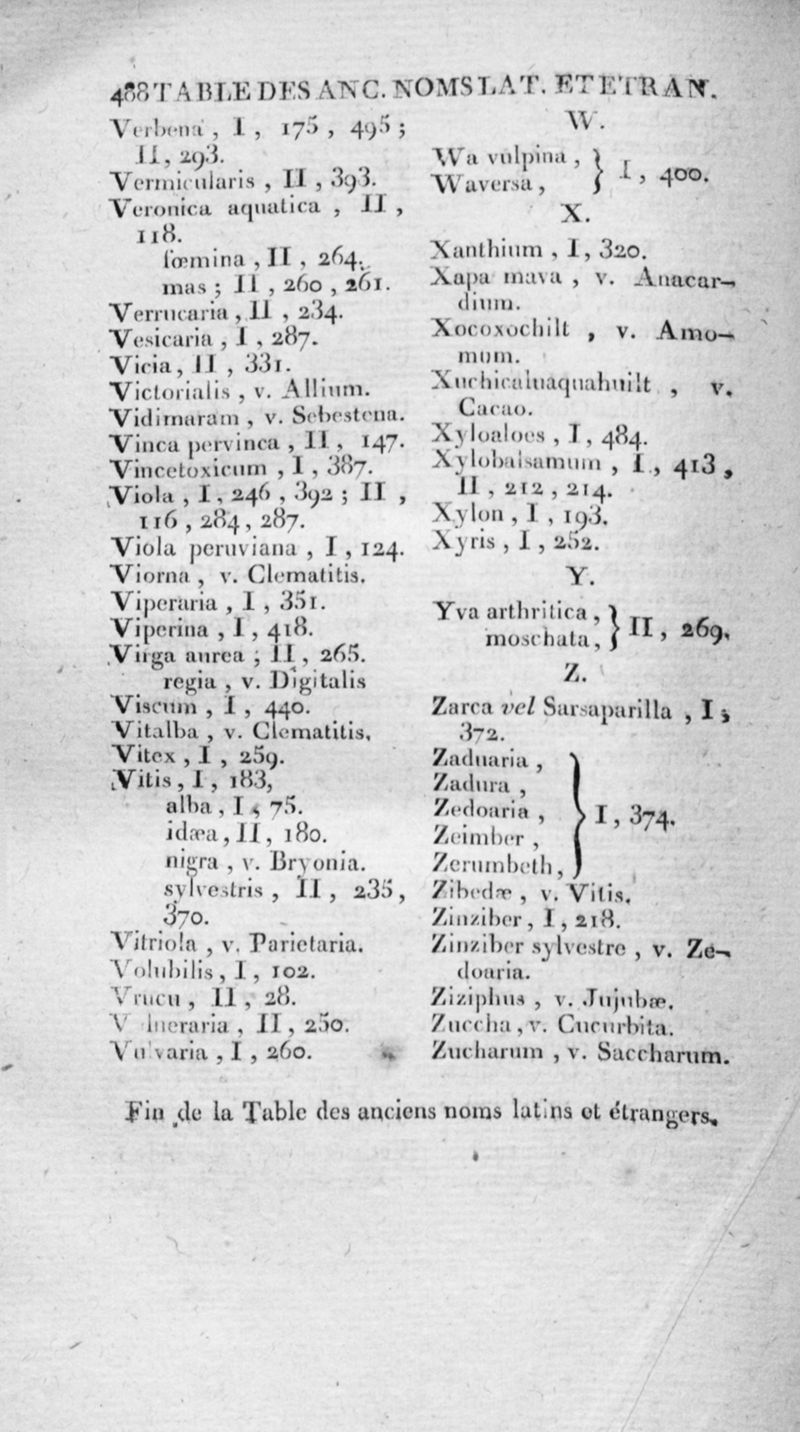 488 TABLE DES ANC. NOMS LAT. ET ETRAN.
Verbena , I , 175 , 495 ;
II , 293.
Vermicularis , II , 393.
Veronica aquatica , II ,
118.
fœmina , II , 264.
mas ; II , 260 , 261.
Verrucaria , II , 234.
Vesicaria , I , 287.
Vicia , II , 331.
Victorialis , v. Allium.
Vidimaram , v. Sebestena.
Vinca pervinca , II , 147.
Vincetoxicum , I , 387.
Viola , I , 246 , 392 ; II ,
116 , 284 , 287.
Viola peruviana , I , 124.
Viorna , v. Clematitis.
Viperaria , I , 351.
Viperina , I , 418.
Virga aurea ; II , 265.
regia , v. Digitalis
Viscum , I , 440.
Vitalba , v. Clematitis.
Vitex , I , 259.
Vitis , I , 183,
alba , I , 75.
idæa , II , 180.
nigra , v. Bryonia.
sylvestris , II , 235 ,
370.
Vitriola , v. Parietaria.
Volubilis , I , 102.
Vrucu , II , 28.
V lneraria , II , 250.
Vulvaria , I , 260.
W.
Wa vulpina , } I , 400.
Waversa ,
X.
Xanthium , I , 320.
Xapa mava , v. Anacar-
dium.
Xocoxochilt , v. Amo-
mum.
Xuchicaluaquahuilt , v.
Cacao.
Xyloaloes , I , 484.
Xylobalsamum , I , 413 ,
II , 212 , 214.
Xylon , I , 193.
Xyris , I , 252.
Y.
Yva arthritica , } II , 269.
moschata ,
Z.
Zarca vel Sarsaparilla , I ;
372.
Zaduaria ,
Zadura ,
Zedoaria , } I , 374.
Zeimber ,
Zerumbeth ,
Zibedæ , v. Vitis.
Zinziber , I , 218.
Zinziber sylvestre , v. Ze-
doaria.
Ziziphus , v. Jujubæ.
Zuccha , v. Cucurbita.
Zucharum , v. Saccharum.
Fin de la Table des anciens noms latins et étrangers.